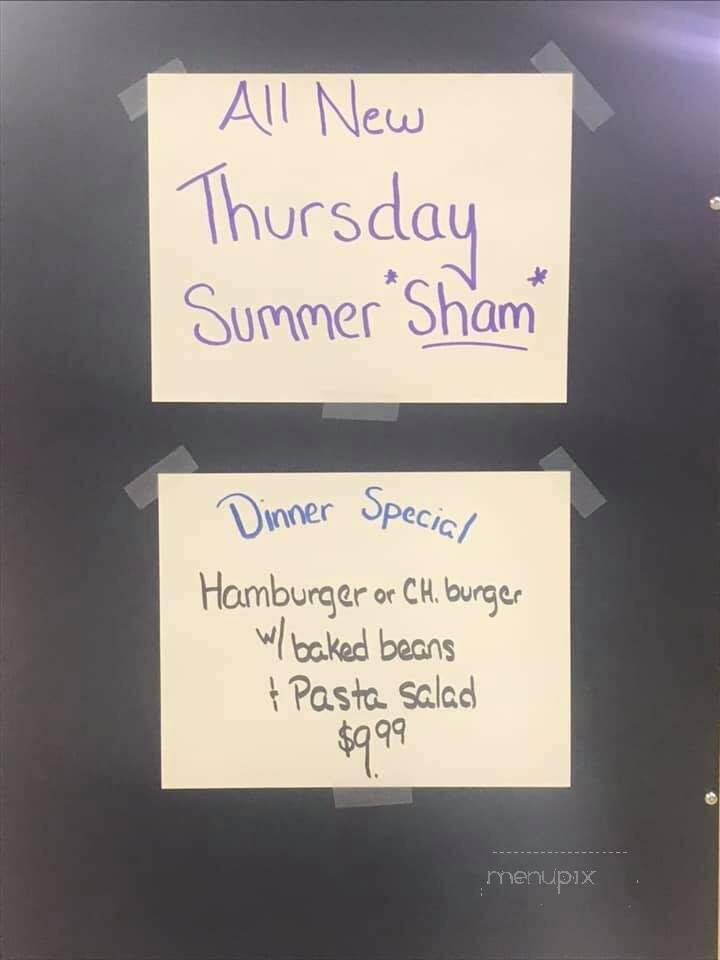 All New
Thursday
Summer *Sham*
Dinner Special
Hamburger or CH. burger
w/ baked beans
+ Pasta salad
$9.99
menupix